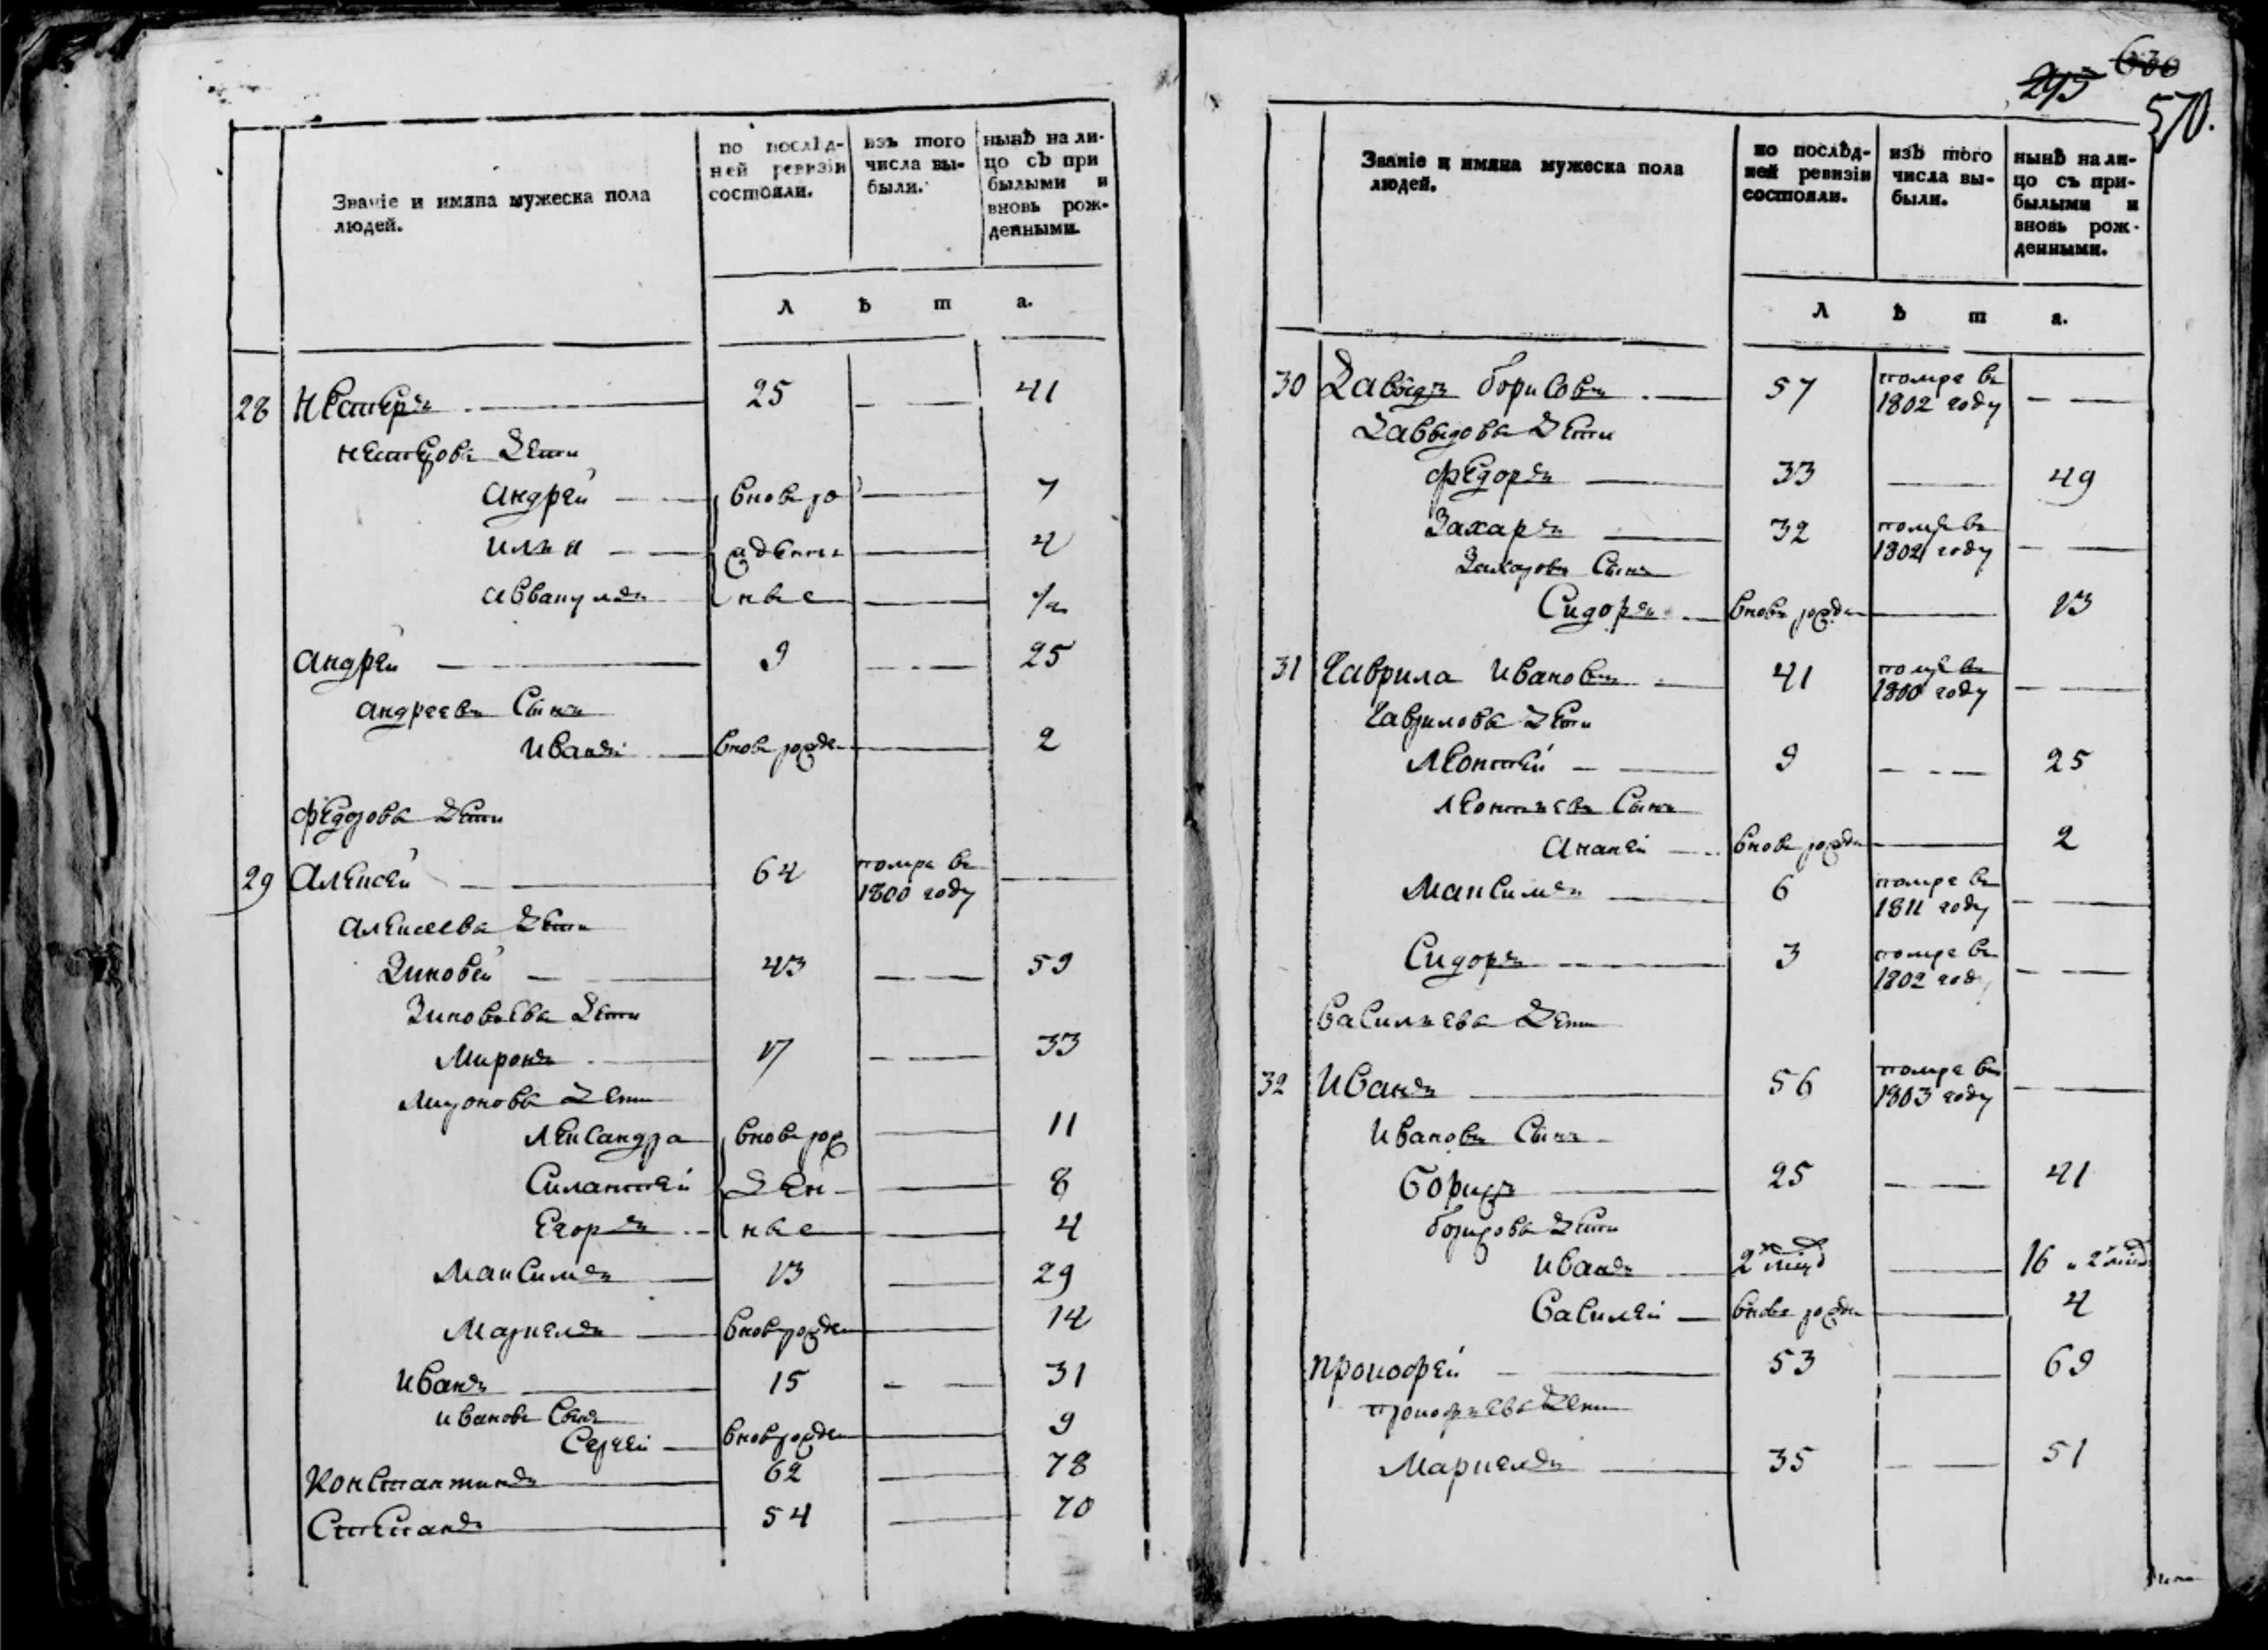 Званіе и имяна мужеска пола
людей.
по послѣд-
ней ревизіи
состояли.
изъ того
числа вы-
были.
нынѣ на ли-
цо съ при
былыми и
вновь рож-
денными.
Л ѣ т а.
28 Нестеръ 25 41
Нестерова Дети
Андрей вновь ро 7
Илья жденны 4
Аввакумъ ные ½
Андрей 9 25
Андреевъ Сынъ
Иванъ вновь рожден 2
Федорова Дети
29 Алексей 64 помре въ
1800 году
Алексеева Дети
Зиновей 43 59
Зиновьева Дети
Миронъ 17 33
Миронова Дети
Лександра вновь рож 11
Силантей ден 8
Егоръ ные 4
Максимъ 13 29
Маркелъ вновь рожден 14
Иванъ 15 31
Ивановъ Сынъ
Сергей вновь рожден 9
Константинъ 62 78
Степанъ 54 70
295 630
570.
Званіе и имяна мужеска пола
людей.
по послѣд-
ней ревизіи
состояли.
изъ того
числа вы-
были.
нынѣ на ли-
цо съ при-
былыми и
вновь рож-
денными.
Л ѣ т а.
30 Давыдъ Борисовъ 57 помре въ
1802 году
Давыдова Дети
Федоръ 33 49
Захаръ 32 помре въ
1802 году
Захаровъ Сынъ
Сидоръ вновь рожден 13
31 Гаврила Ивановъ 41 помре въ
1800 году
Гаврилова Дети
Леонтей 9 25
Леонтьевъ Сынъ
Ананей вновь рожден 2
Максимъ 6 помре въ
1811 году
Сидоръ 3 помре въ
1802 году
Васильева Дети
32 Иванъ 56 помре въ
1803 году
Ивановъ Сынъ
Борисъ 25 41
Борисова Дети
Иванъ 2 16 и 2
Василей вновь рожден 4
Прокофей 53 69
Прокофьева Дети
Маркелъ 35 51